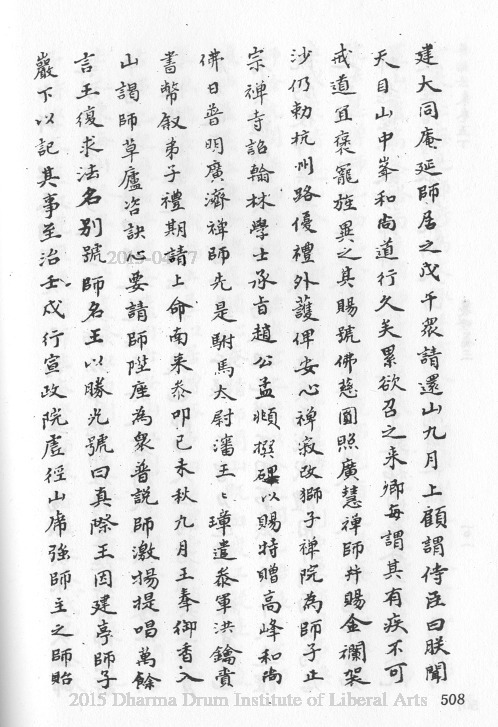 建大同庵延師居之戊午眾請還山九月上顧謂侍臣曰朕聞
天目山中峯和尚道行久矣累欲召之來卿每謂其有疾不可
戒道宜褒寵旌異之其賜號佛慈圓照廣慧禪師并賜金襴袈
沙仍勅杭州路優禮外護俾安心禪寂改獅子禪院為師子正
宗禪寺詔翰林學士承旨趙公孟頫撰碑以賜特贈高峰和尚
佛日普明廣濟禪師先是駙馬太尉瀋王王璋遣叅軍洪鑰賫
書幣叙弟子禮期請上命南来叅叩己未秋九月王奉御香入
山謁師草廬咨訣心要請師陞座為衆普說師激揚提唱萬餘
言王復求法名別號師名王以勝光號曰真際王因建亭師子
巖下以記其事至治壬戌行宣政院虛徑山席強師主之師貽
2015 Dharma Drum Institute of Liberal Arts
508